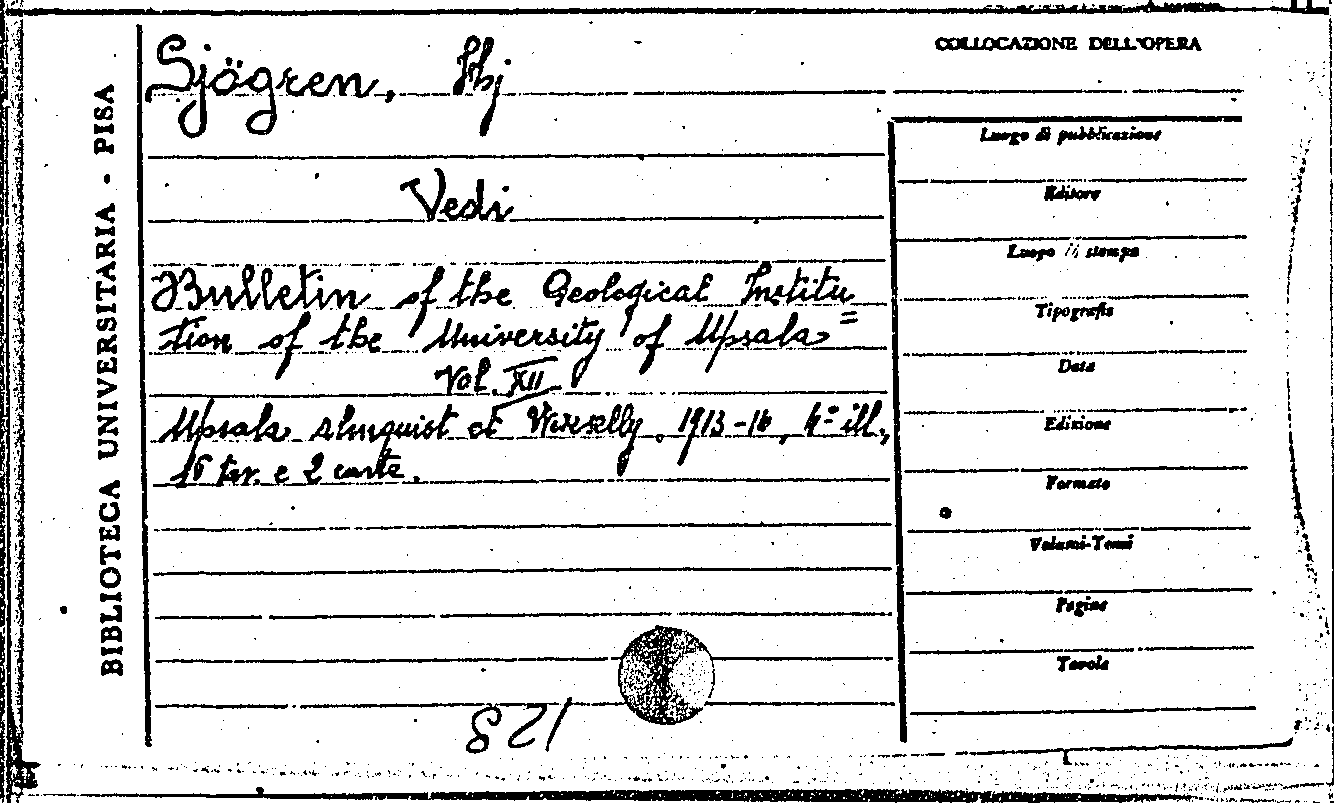 COLLOCAZIONE DELL'OPERA
BIBLIOTECA UNIVERSITARIA - PISA
Sjögren, Hj
Vedi
Bulletin of the Geological Institu=
tion of the University of Upsala
Vol. XII
Upsala Almquist et 1913-16, 4° ill.,
15 tav. e 2 carte.
128
Luogo di pubblicazione
Editore
Luogo di stampa
Tipografia
Data
Edizione
Formato
Volumi-Tomi
Pagine
Tavole